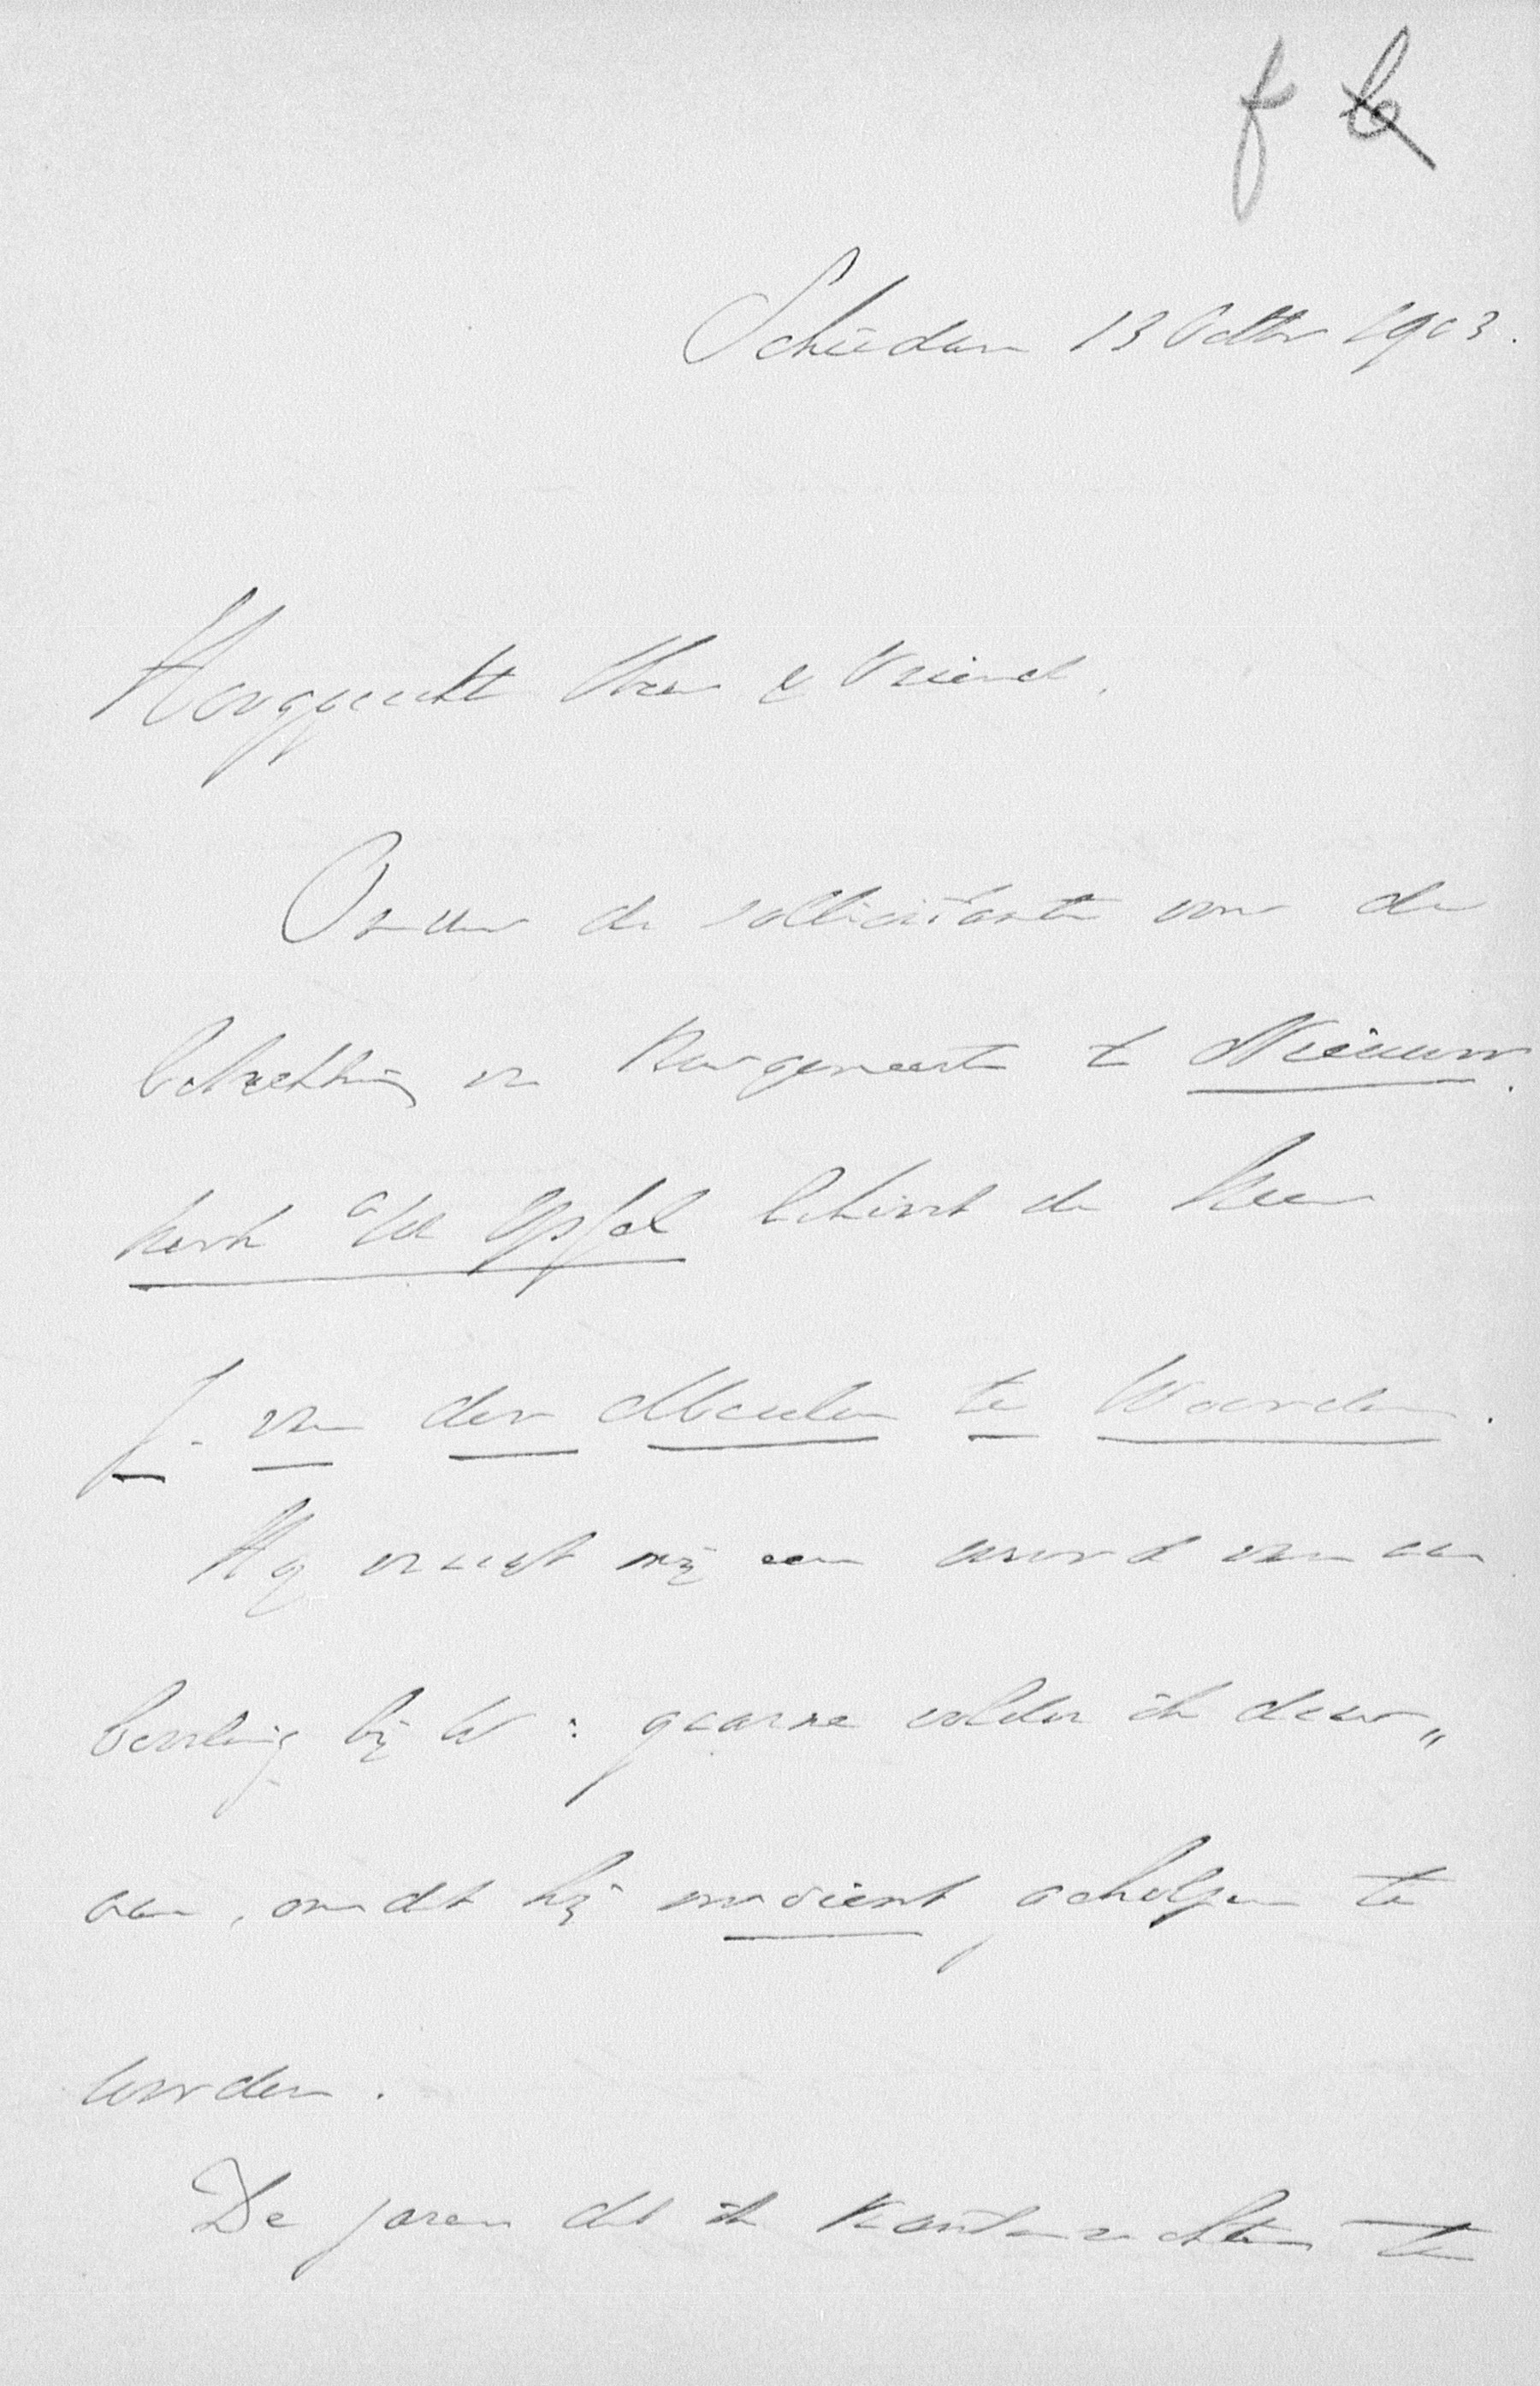 f b
Schiedam 13 Octbr 1903.
Hooggeacht Heer & Vriend,
Onder de sollicitanten voor de
betrekking van Burgemeester te Nieuwer
kerk a/d IJssel behoort de Heer
J. van der Meulen te Woerden.
Hij vraagt mij een woord van aan
beveling bij U: gaarne voldoe ik daar„
aan, omdat hij verdient geholpen te
worden.
De jaren dat ik Kantonrechter te